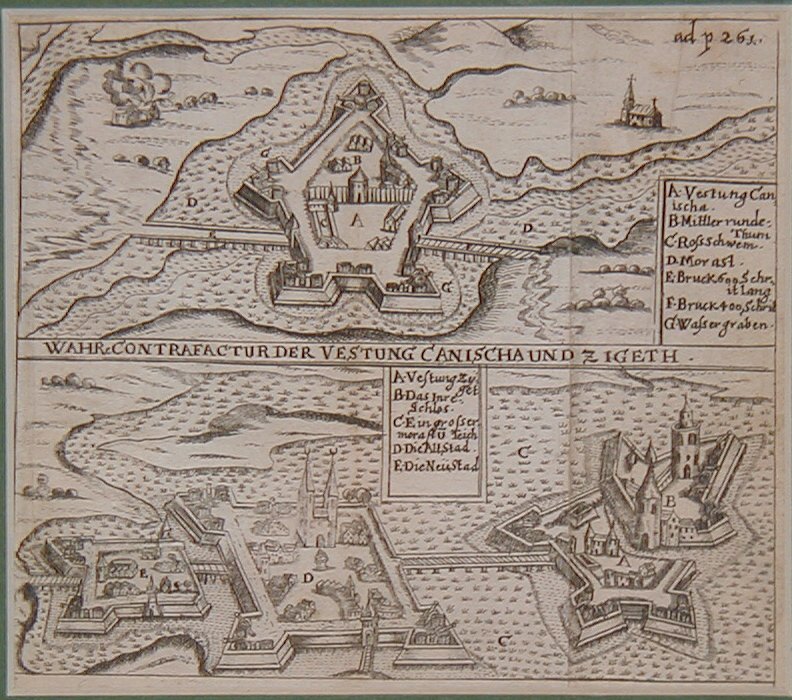 ad p 261.
A. Vestung Can
ischa.
B. Mittler runde
Thurn
C. Ros Schwem.
D. Morast.
E. Bruck 600 Schr
it lang
F. Bruck 400 Schrit
G. Wasser graben.
C
B
A
D
D
E
G
WAHRE CONTRAFACTUR DER VESTUNG CANISCHA UND ZIGETH.
A. Vestung Zy
get
B. Das Inre
Schlos.
C. Ein grosser
morast ū Teich
D. Die Alt Stad
E. Die Neü Stad
C
B
E
D
C